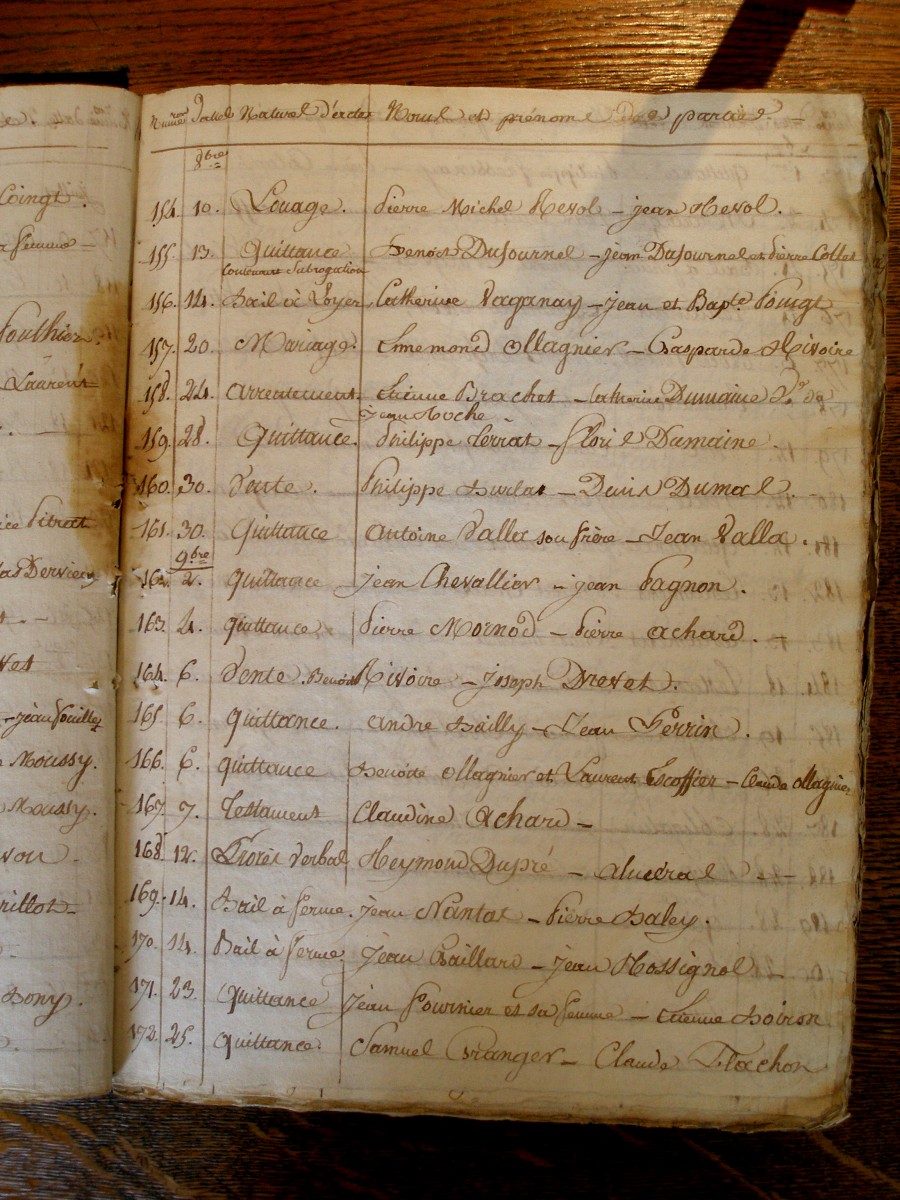 Coingt.
femme -
Pouthier.
Laurent
Pitrat
Dervieu
Vet
- jean Fouillet
Moussy.
Moussy.
von.
rillot
Bony.
Numéros Dates Natures d'actes Noms et prénoms des parties. -
8bre
154. 10. Louage. Pierre Michel Revol - jean Revol.
155. 13. Quittance Benoit Dufournel - jean Dufournel et Pierre Collet
contenant subrogation
156. 14. Bail à Loyer Catherine Vaganay - jean et Bapte. Pongt
157. 20. Mariage. Ennemond Ollagnier - Gasparde Rivoire
158. 24. arrentement. Etienne Brachet - Catherine Dumaine Ve. de
Jean Roche
159. 28. Quittance. Philippe Ferrat - Dumaine.
160. 30. Vente. Philippe Burlat - Denis Dumas. -
161. 30. Quittance antoine Valla son frère - Jean Valla.
9bre
162. 2. quittance jean Chevallier - jean Pagnon.
163. 4. quittance. Pierre Mornod - Pierre achard. -
164. 6. Vente. Benoit Rivoire - joseph Drevet.
165. 6. quittance. andré Bailly - Jean Perrin.
166. 6. quittance Benoîte Ollagnier et Laurent Escoffier - Claude Ollagnier
167. 7. Testament Claudine Achard -
168. 12. Procès Verbal Reymond Dupré - -
169. 14. Bail à ferme. jean Nantas - Pierre Baley.
170. 14. Bail à ferme. jean Gaillard - jean Rossignol -
171. 23. quittance jean Fournier et sa femme - Etienne Boiron
172. 25. quittance. Samuel Granger - Claude Flachon